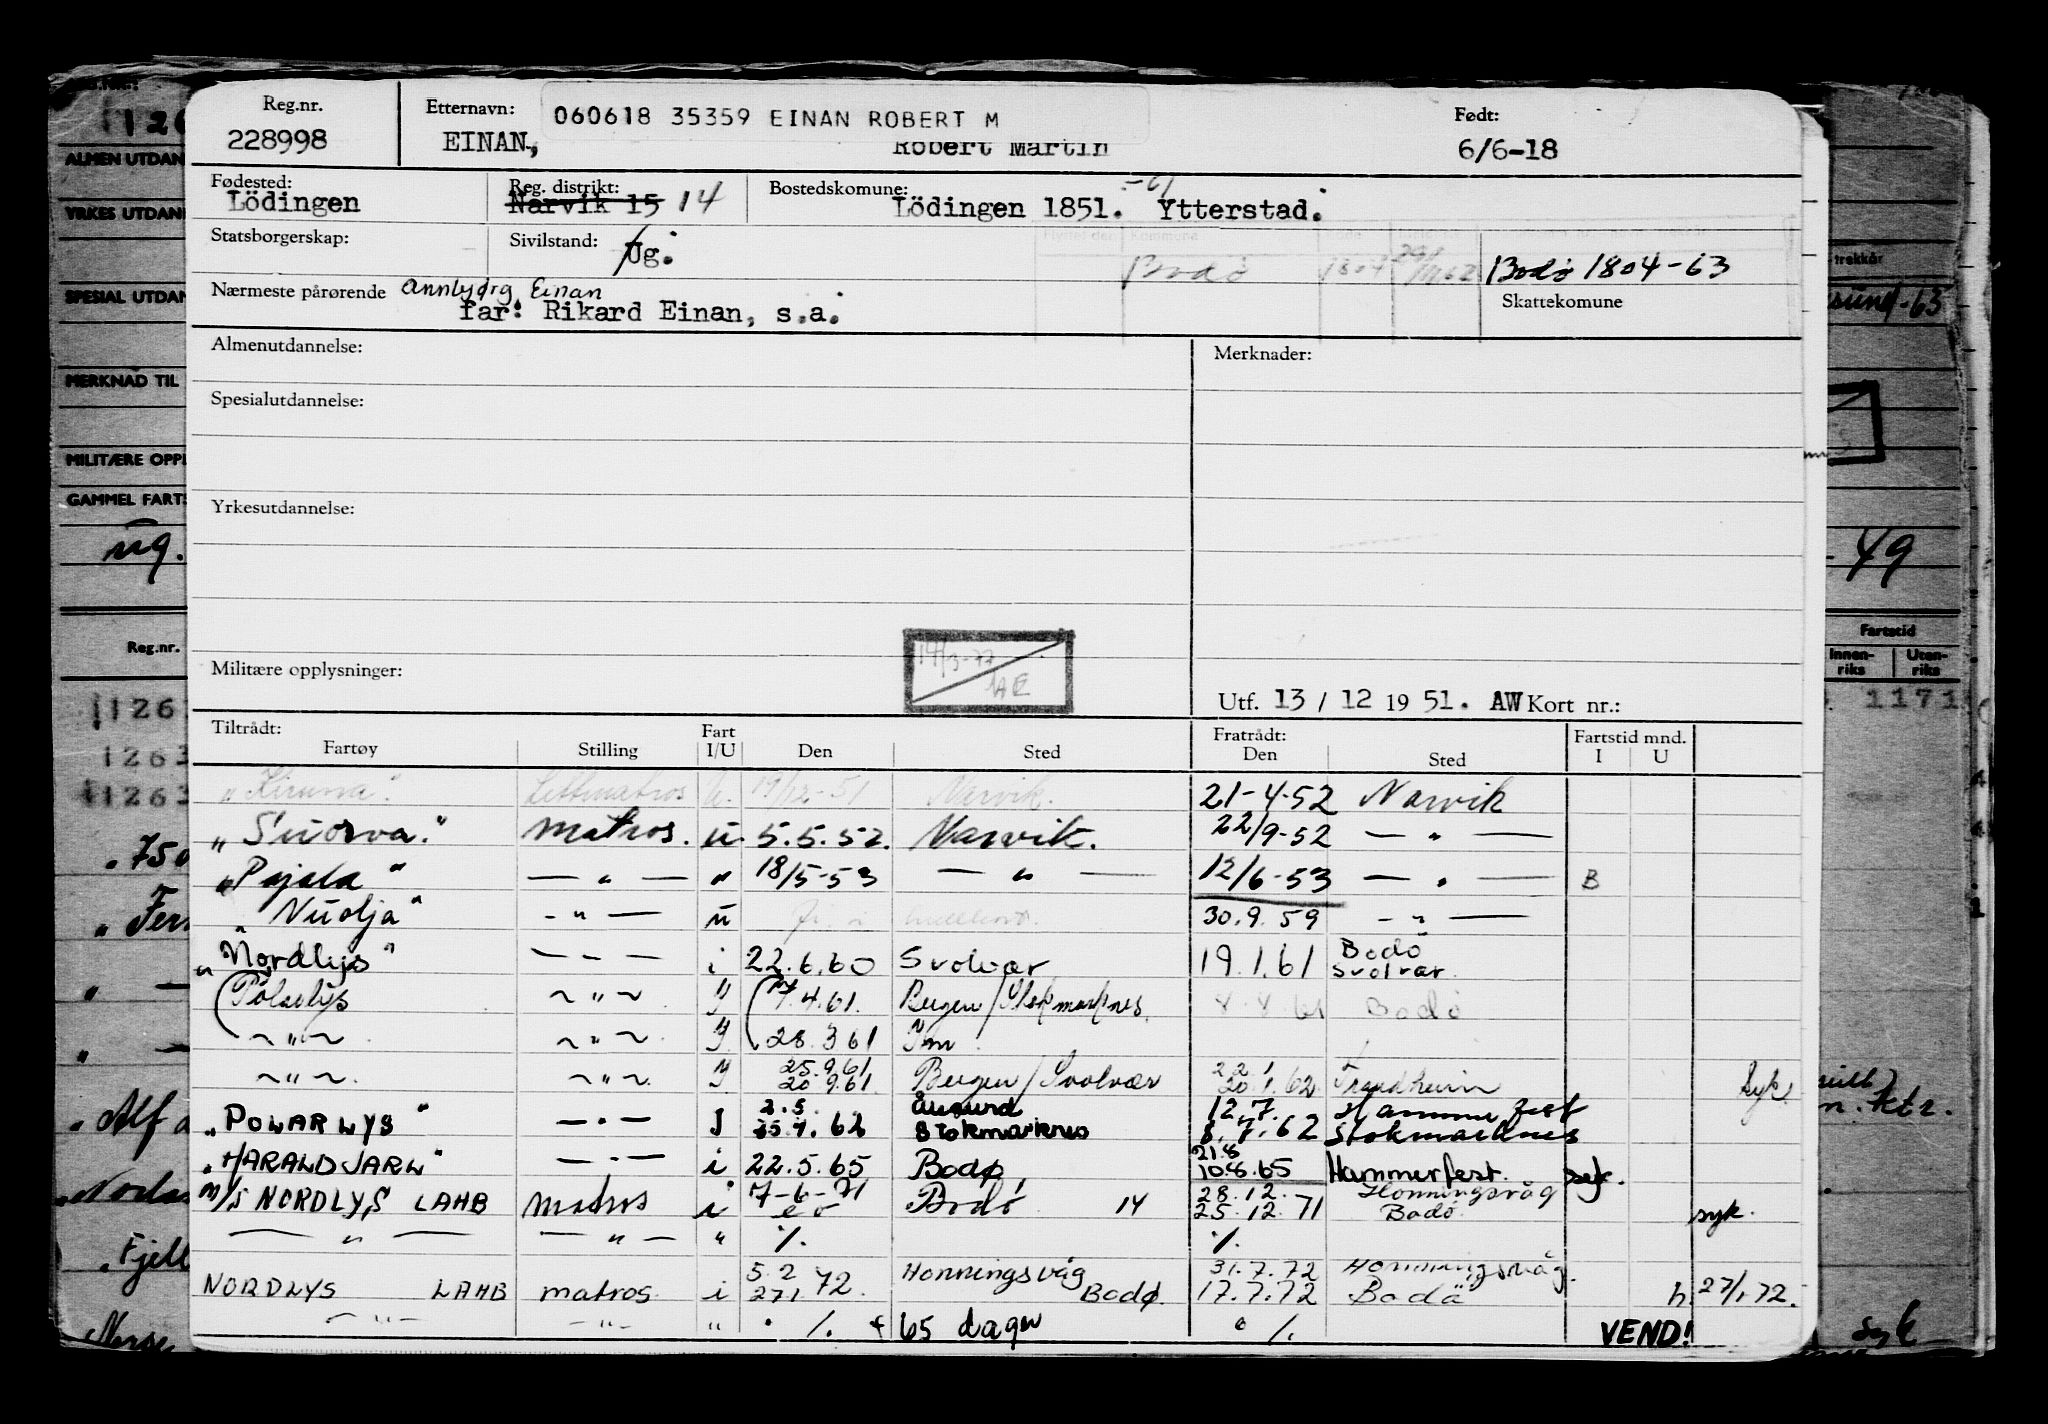 Reg.nr. Etternavn: 060618 35359 EINAN ROBERT M Født:
228998 EINAN, Robert Martin 6/6-18
Fødested: Reg. distrikt: Bostedskomune: -61
Lödingen Narvik 15 14 Lödingen 1851. Ytterstad.
Statsborgerskap: Sivilstand: Ug. Bodø 1804 Bodø 1804-63
Nærmeste pårørende Annbjørg Einan Skattekomune
far: Rikard Einan, s.a.
Almenutdannelse: Merknader:
Spesialutdannelse:
Yrkesutdannelse:
Militære opplysninger: 14/3-77
Utf. 13 / 12 19 51. AW Kort nr.:
Tiltrådt: Fart Fratrådt: Fartstid mnd.
Fartøy Stilling I/U Den Sted Den Sted I U
"Kiruna". Lettmatros u. 19/12-51 Narvik. 21-4-52 Narvik
"Suorva." matros. u 5.5.52. Narvik. 22/9-52 — " —
"Pajala" — " — " 18/5-53 — " — 12/6-53 — " — B
"Nuolja" - " — u 30.9.59 - " —
"Nordlys" — " — i 22.6.60 Svolvær 19.1.61 Bodö Svolvær.
Polarlys ~ " ~ 4.61. Bergen/Stokmarknes. 61 Bodö
~ " ~ ~ " ~ 28.3 61
~ " ~. ~ " ~. 25.9.61 20 9.61. Bergen/Svolvær 22.1 20.1.62. Trondheim Syk.
"POLARLYS" — " — I 2.5. 62 Ålesund Stokmarknes 12.7. 7.62 Hammerfest Stokmarknes
"HARALD JARL" — " — i 22.5.65 Bodø, 21.8 10.8.65 Hammerfest. syk.
M/S NORDLYS LAHB matros i 7-6-71 Bodö 14 28.12. 25.12.71 Honningsvåg Bodö. syk.
— " — — " — " %. %.
NORDLYS LAHB matros i 5.2 27.1 72. Honningsvåg Bodø. 31.7.72 17.7.72 Honningsvåg. Bodö h. 27/1 72.
- " - - " - " %. + 65 dager %. VEND!
ALMEN UTDAN
YRKES UTDAN
SPESIAL UTDAN
MERKNAD TIL
MILITÆRE OPPL
GAMMEL FARTS
ug.
Reg.nr.
1263
1263
Alf
Fjell
trekkår
sund-63
49
Fartstid
Innen-riks Uten-riks
1171
syk